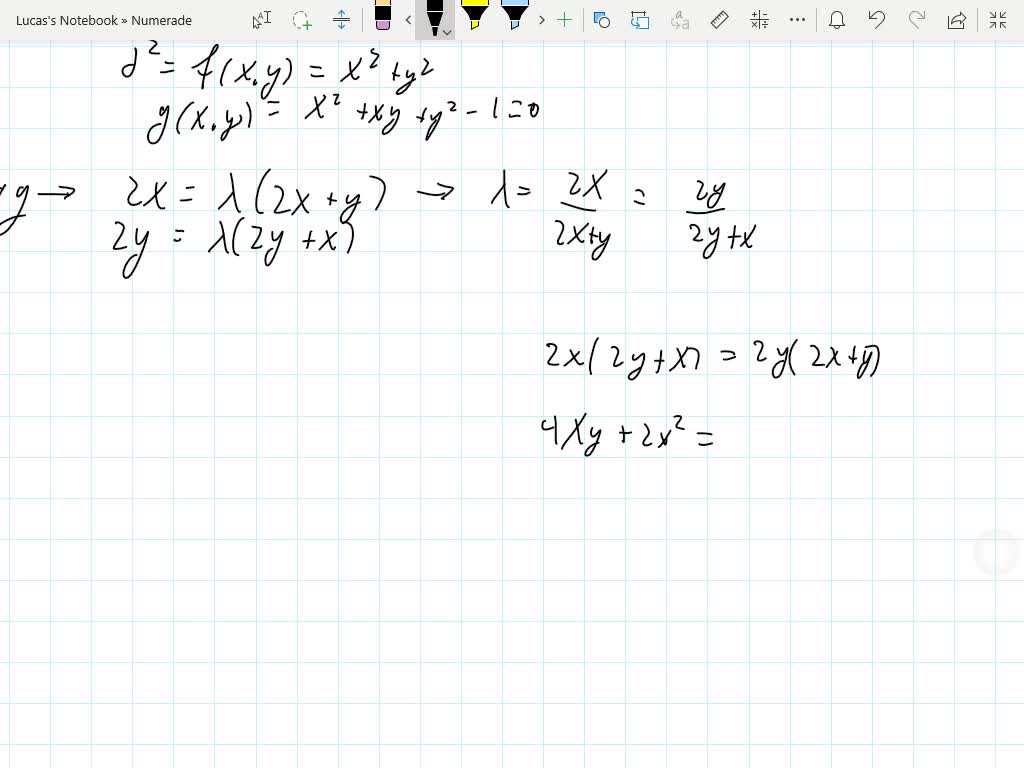 Lucas's Notebook » Numerade
d² = f(x,y) = x² + y²
g(x,y) = x² + xy + y² - 1 = 0
g → 2x = λ(2x + y) → λ = 2x/2x+y = 2y/2y+x
2y = λ(2y + x)
2x(2y + x) = 2y(2x + y)
4xy + 2x² =